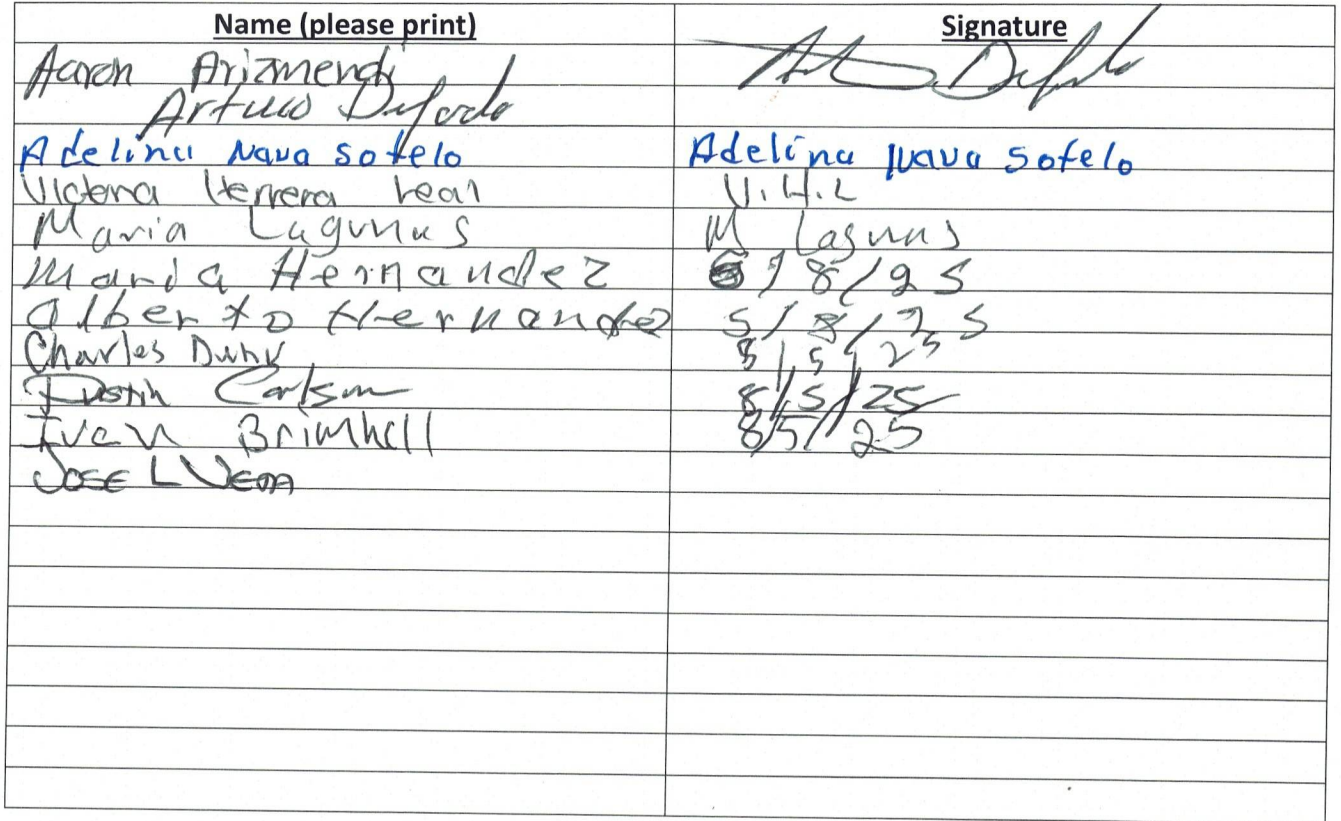 Name (please print) Signature
Aaron Arizmendi
Arturo
Adelina Nava Sotelo Adelina Nava Sotelo
Victoria Herrera Leal V.H.L
Maria Lagunas M Lagunas
Maria Hernandez 5/8/25
Alberto Hernandez 5/8/25
Charles 8/5/25
Dustin Carlson 8/5/25
Ivan Brimhall 8/5/25
Jose L Vega